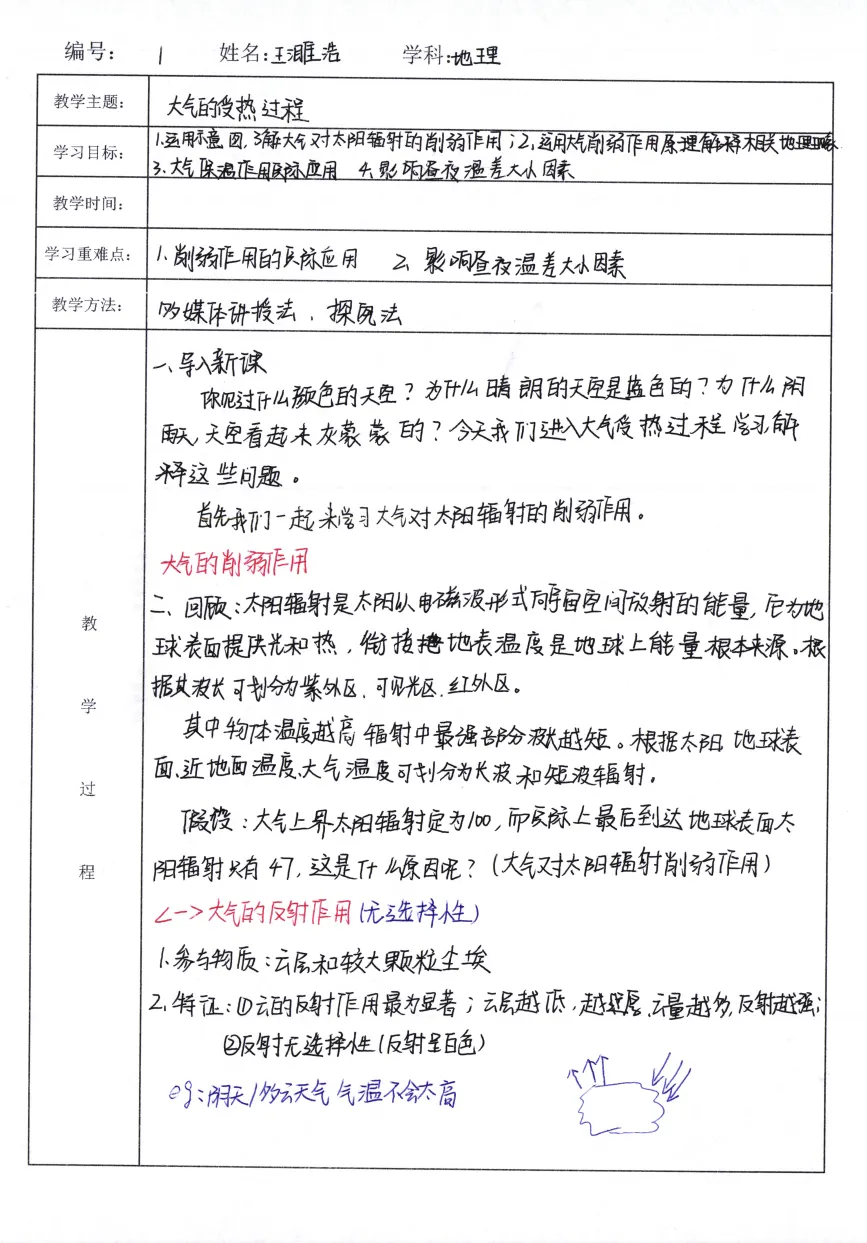 编号： 1 姓名：王雎浩 学科：地理
教学主题： 大气的受热过程
学习目标： 1.运用示意图,了解大气对太阳辐射的削弱作用；2.运用大气削弱作用原理解释相关地理现象
3.大气保温作用实际应用 4.影响昼夜温差大小因素
教学时间：
学习重难点： 1.削弱作用的实际应用 2.影响昼夜温差大小因素
教学方法： 多媒体讲授法、探究法
教学过程
一、导入新课
你见过什么颜色的天空？为什么晴朗的天空是蓝色的？为什么阴
雨天,天空看起来灰蒙蒙的？今天我们进入大气受热过程学习,解
释这些问题。
首先我们一起来学习大气对太阳辐射的削弱作用。
大气的削弱作用
二、回顾：太阳辐射是太阳以电磁波形式向宇宙空间放射的能量,它为地
球表面提供光和热,衔接地表温度是地球上能量根本来源。根
据其波长可划分为紫外区、可见光区、红外区。
其中物体温度越高辐射中最强部分波长越短。根据太阳、地球表
面、近地面温度、大气温度可划分为长波和短波辐射。
假设：大气上界太阳辐射定为100,而实际上最后到达地球表面太
阳辐射只有47,这是什么原因呢？(大气对太阳辐射削弱作用)
<一>大气的反射作用(无选择性)
1.参与物质：云层和较大颗粒尘埃
2.特征：①云的反射作用最为显著；云层越低,越厚、云量越多,反射越强；
②反射无选择性(反射呈白色)
eg：阴天/多云天气气温不会太高